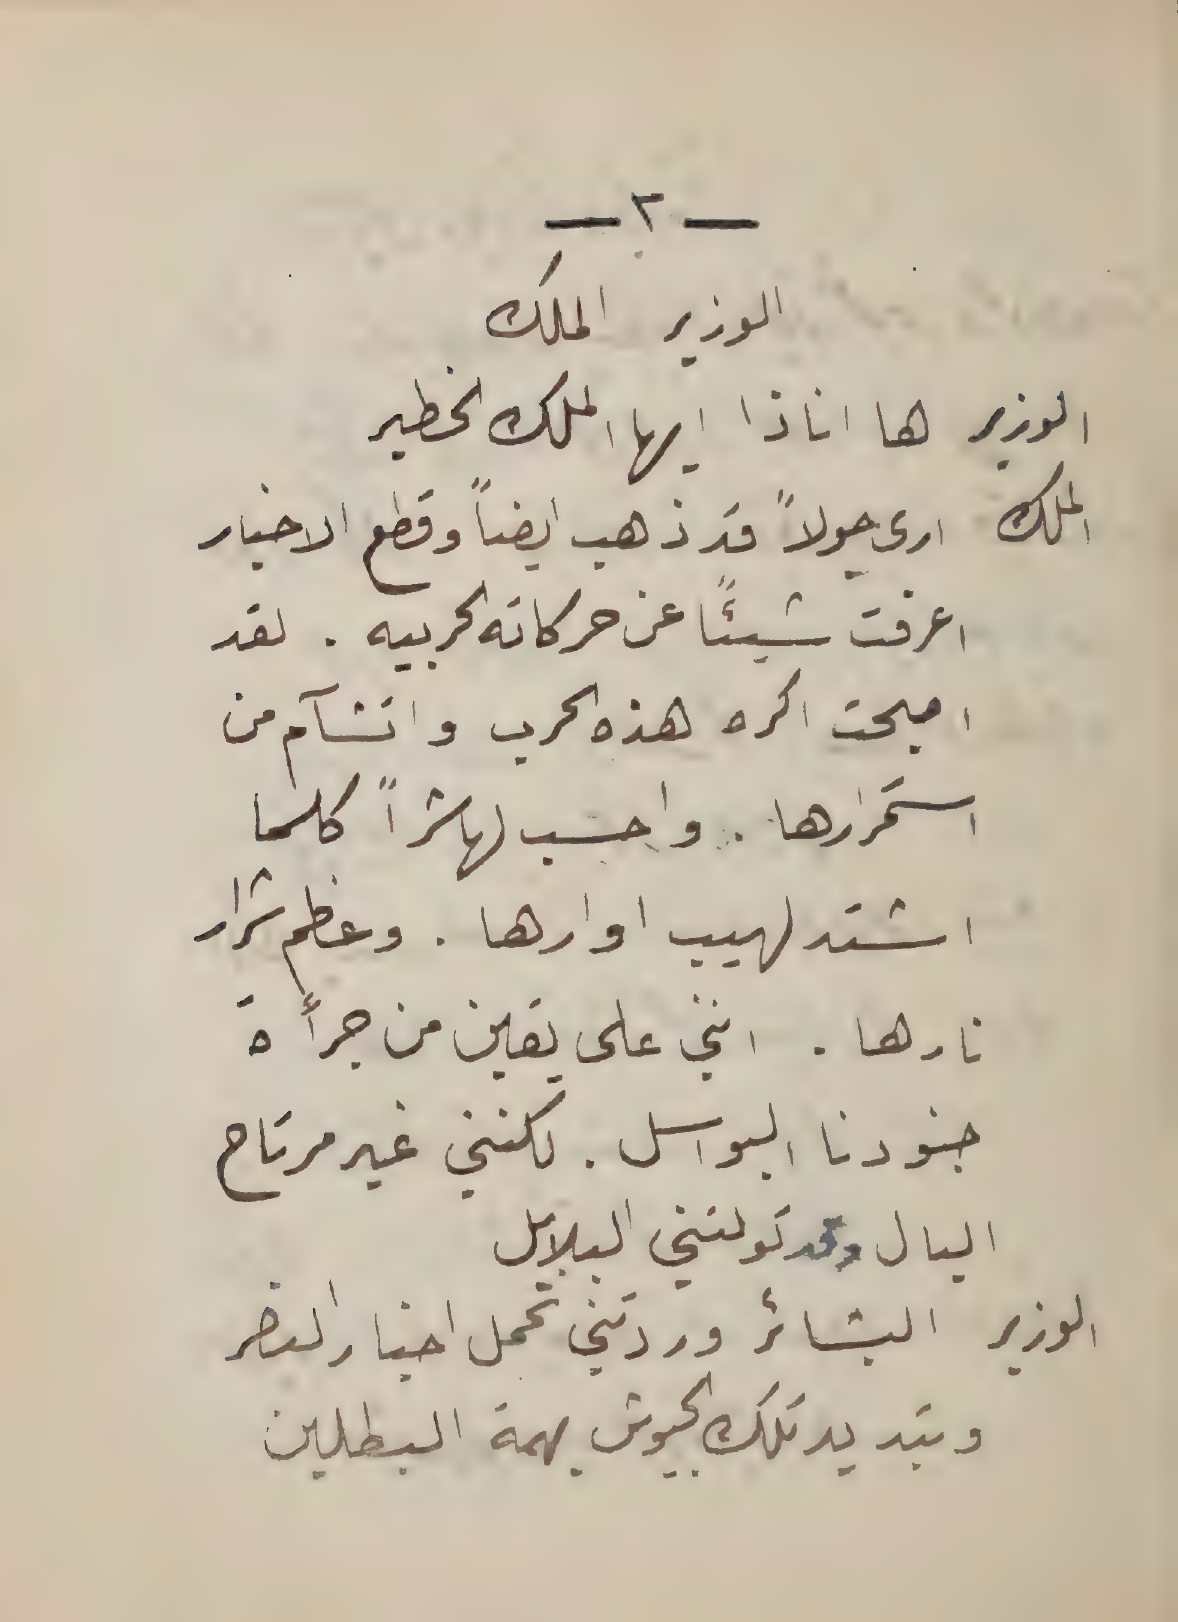 — ٢ —
الوزير الملك
الوزير ها اناذا ايها الملك الخطير
الملك ارى جولاً قد ذهب ايضاً وقطع الاخبار
اعرفت شيئًا عن حركاته الحربيه . لقد
اصبحت اكره هذه الحرب واتشآم من
استمرارها . واحسب لها شراً كلما
اشتد لهيب اوارها . وعظم شرار
نارها . انني على يقين من جرأة
جنودنا البواسل . لكنني غير مرتاح
البال وقد تولتني البلابل
الوزير البشائر وردتني تحمل اخبار النصر
وبتبديد تلك الجيوش بهمة البطلين